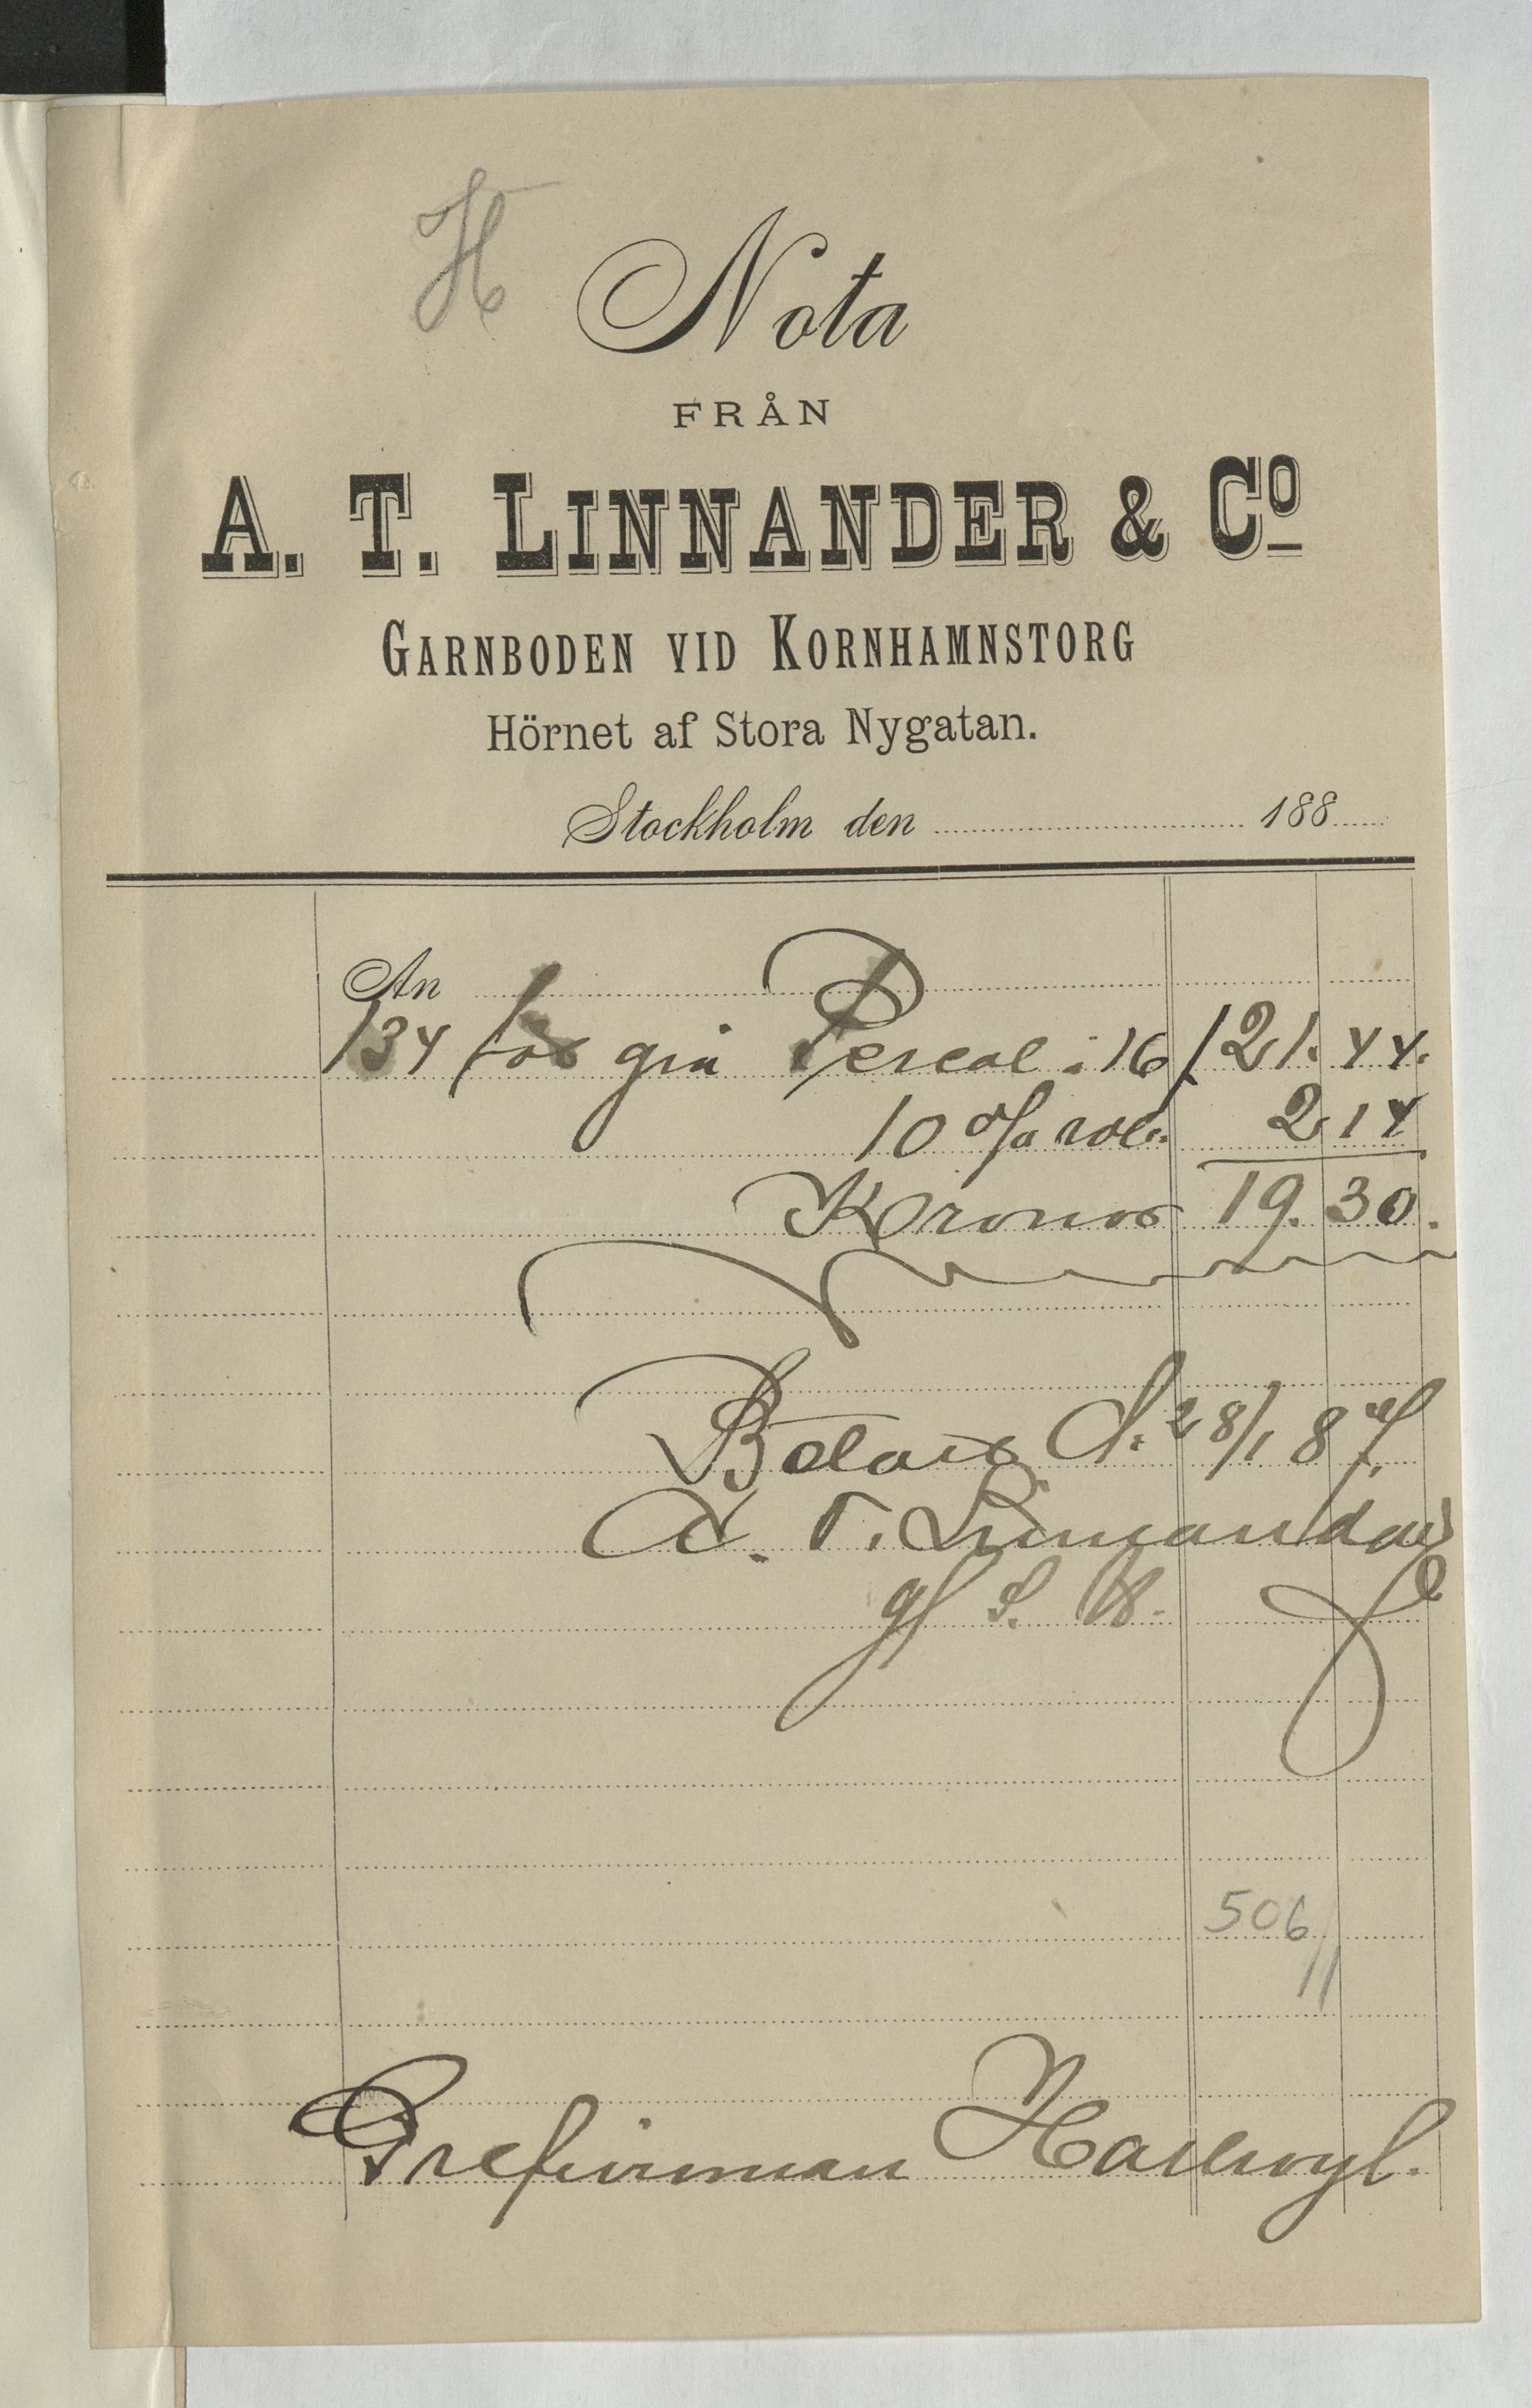 H
Nota
FRÅN
A. T. LINNANDER & Co
GARNBODEN VID KORNHAMNSTORG
Hörnet af Stora Nygatan.
Stockholm den 188
An
134 fot grå Percal : 16 / 21. 44.
10 % rab. 2 14
Kronor 19. 30.
Betalt d. 28/1 87
A. T. Linnander
gf S. W.
506
Grefvinnan Hallwyl.